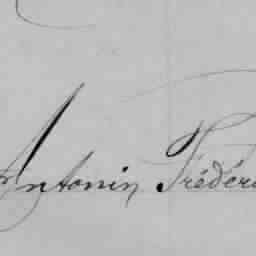 Antonin Frédéri